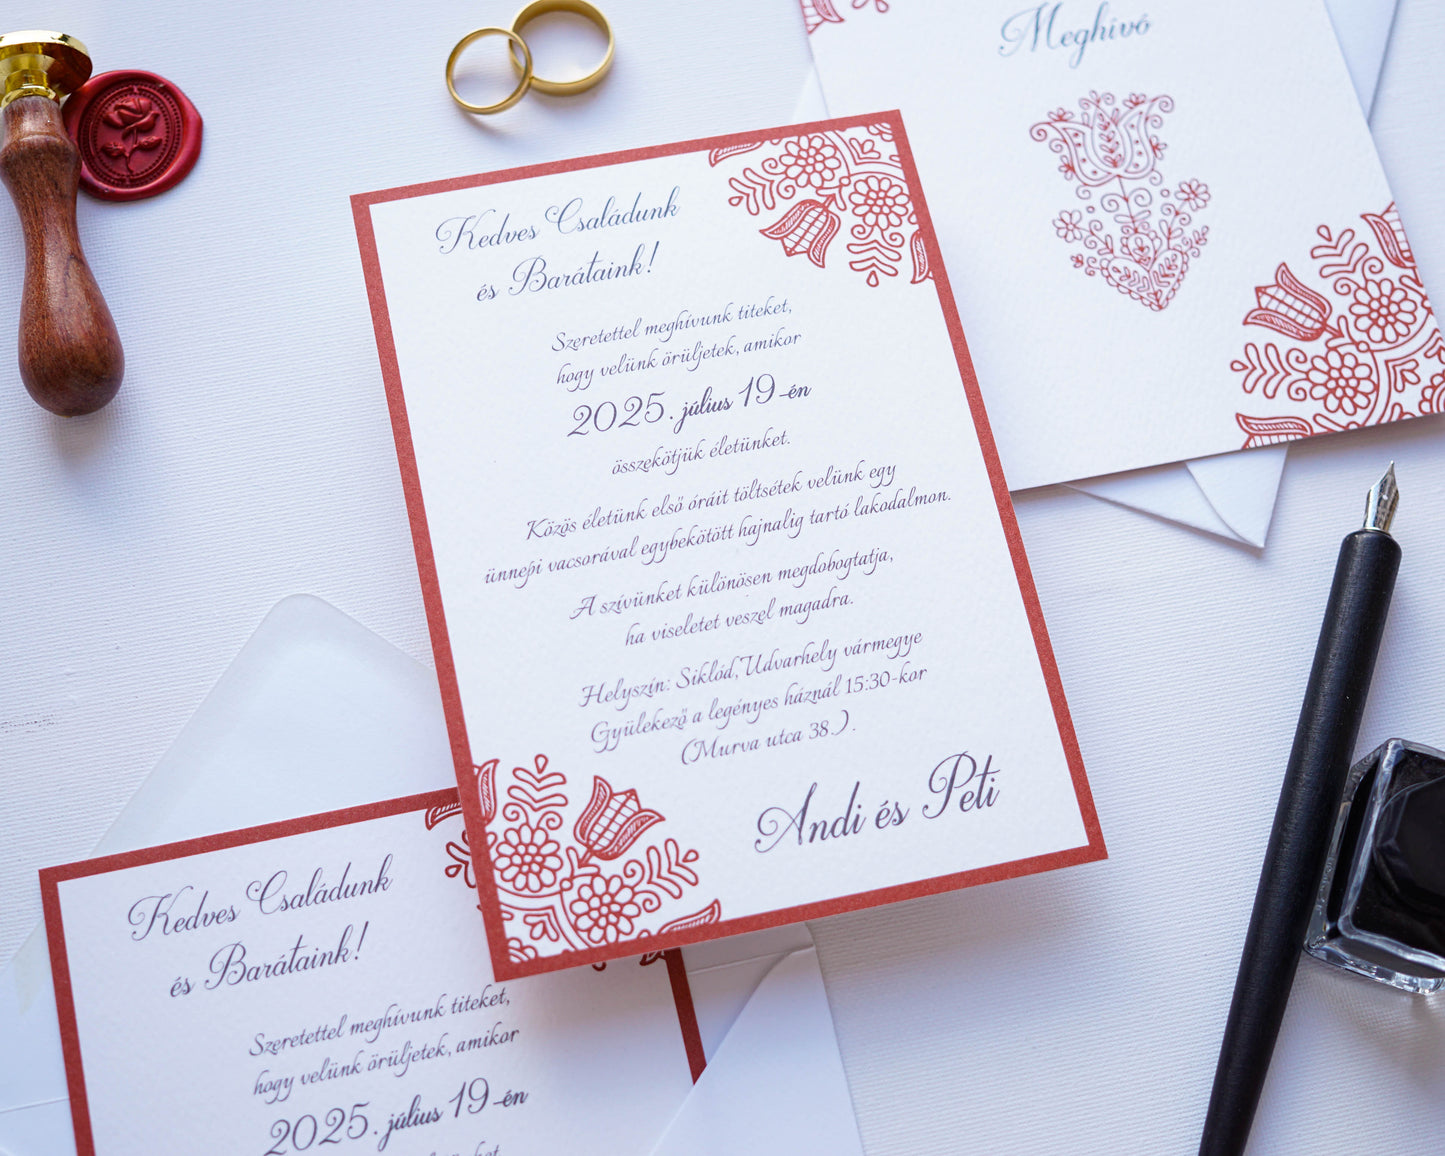 Meghívó
Kedves Családunk
és Barátaink!
Szeretettel meghívunk titeket,
hogy velünk örüljetek, amikor
2025. július 19-én
összekötjük életünket.
Közös életünk első óráit töltsétek velünk egy
ünnepi vacsorával egybekötött hajnalig tartó lakodalmon.
A szívünket különösen megdobogtatja,
ha viseletet veszel magadra.
Helyszín: Siklód, Udvarhely vármegye
Gyülekező a legényes háznál 15:30-kor
(Murva utca 38.).
Andi és Peti
Kedves Családunk
és Barátaink!
Szeretettel meghívunk titeket,
hogy velünk örüljetek, amikor
2025. július 19-én